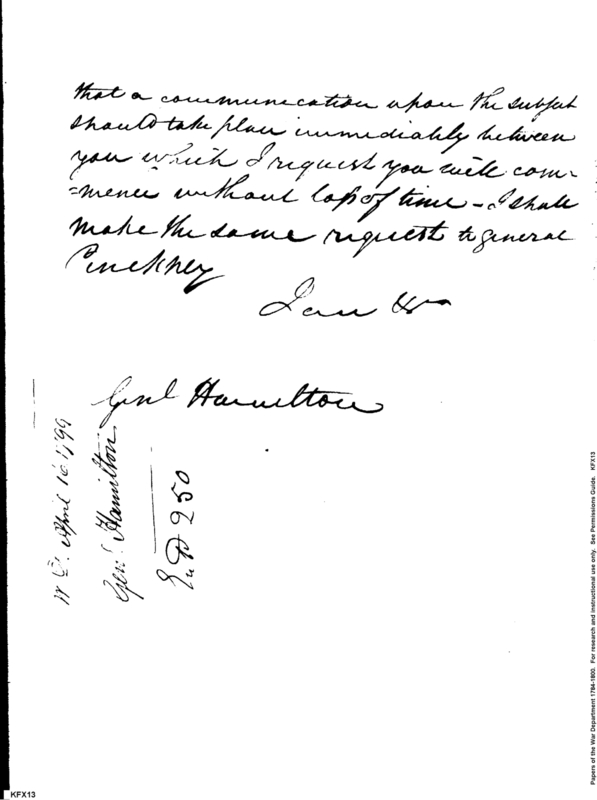 that a communication upon the subject
should take place immediately between
you which I request you will com-
=mence without loss of time - I shall
make the same request to General
Pinckney
I am &c
Genl Hamilton
W D. April 16 1799
Genl. Hamilton
250
Papers of the War Department 1784-1800. For research and instructional use only. See Permissions Guide. KFX13
KFX13